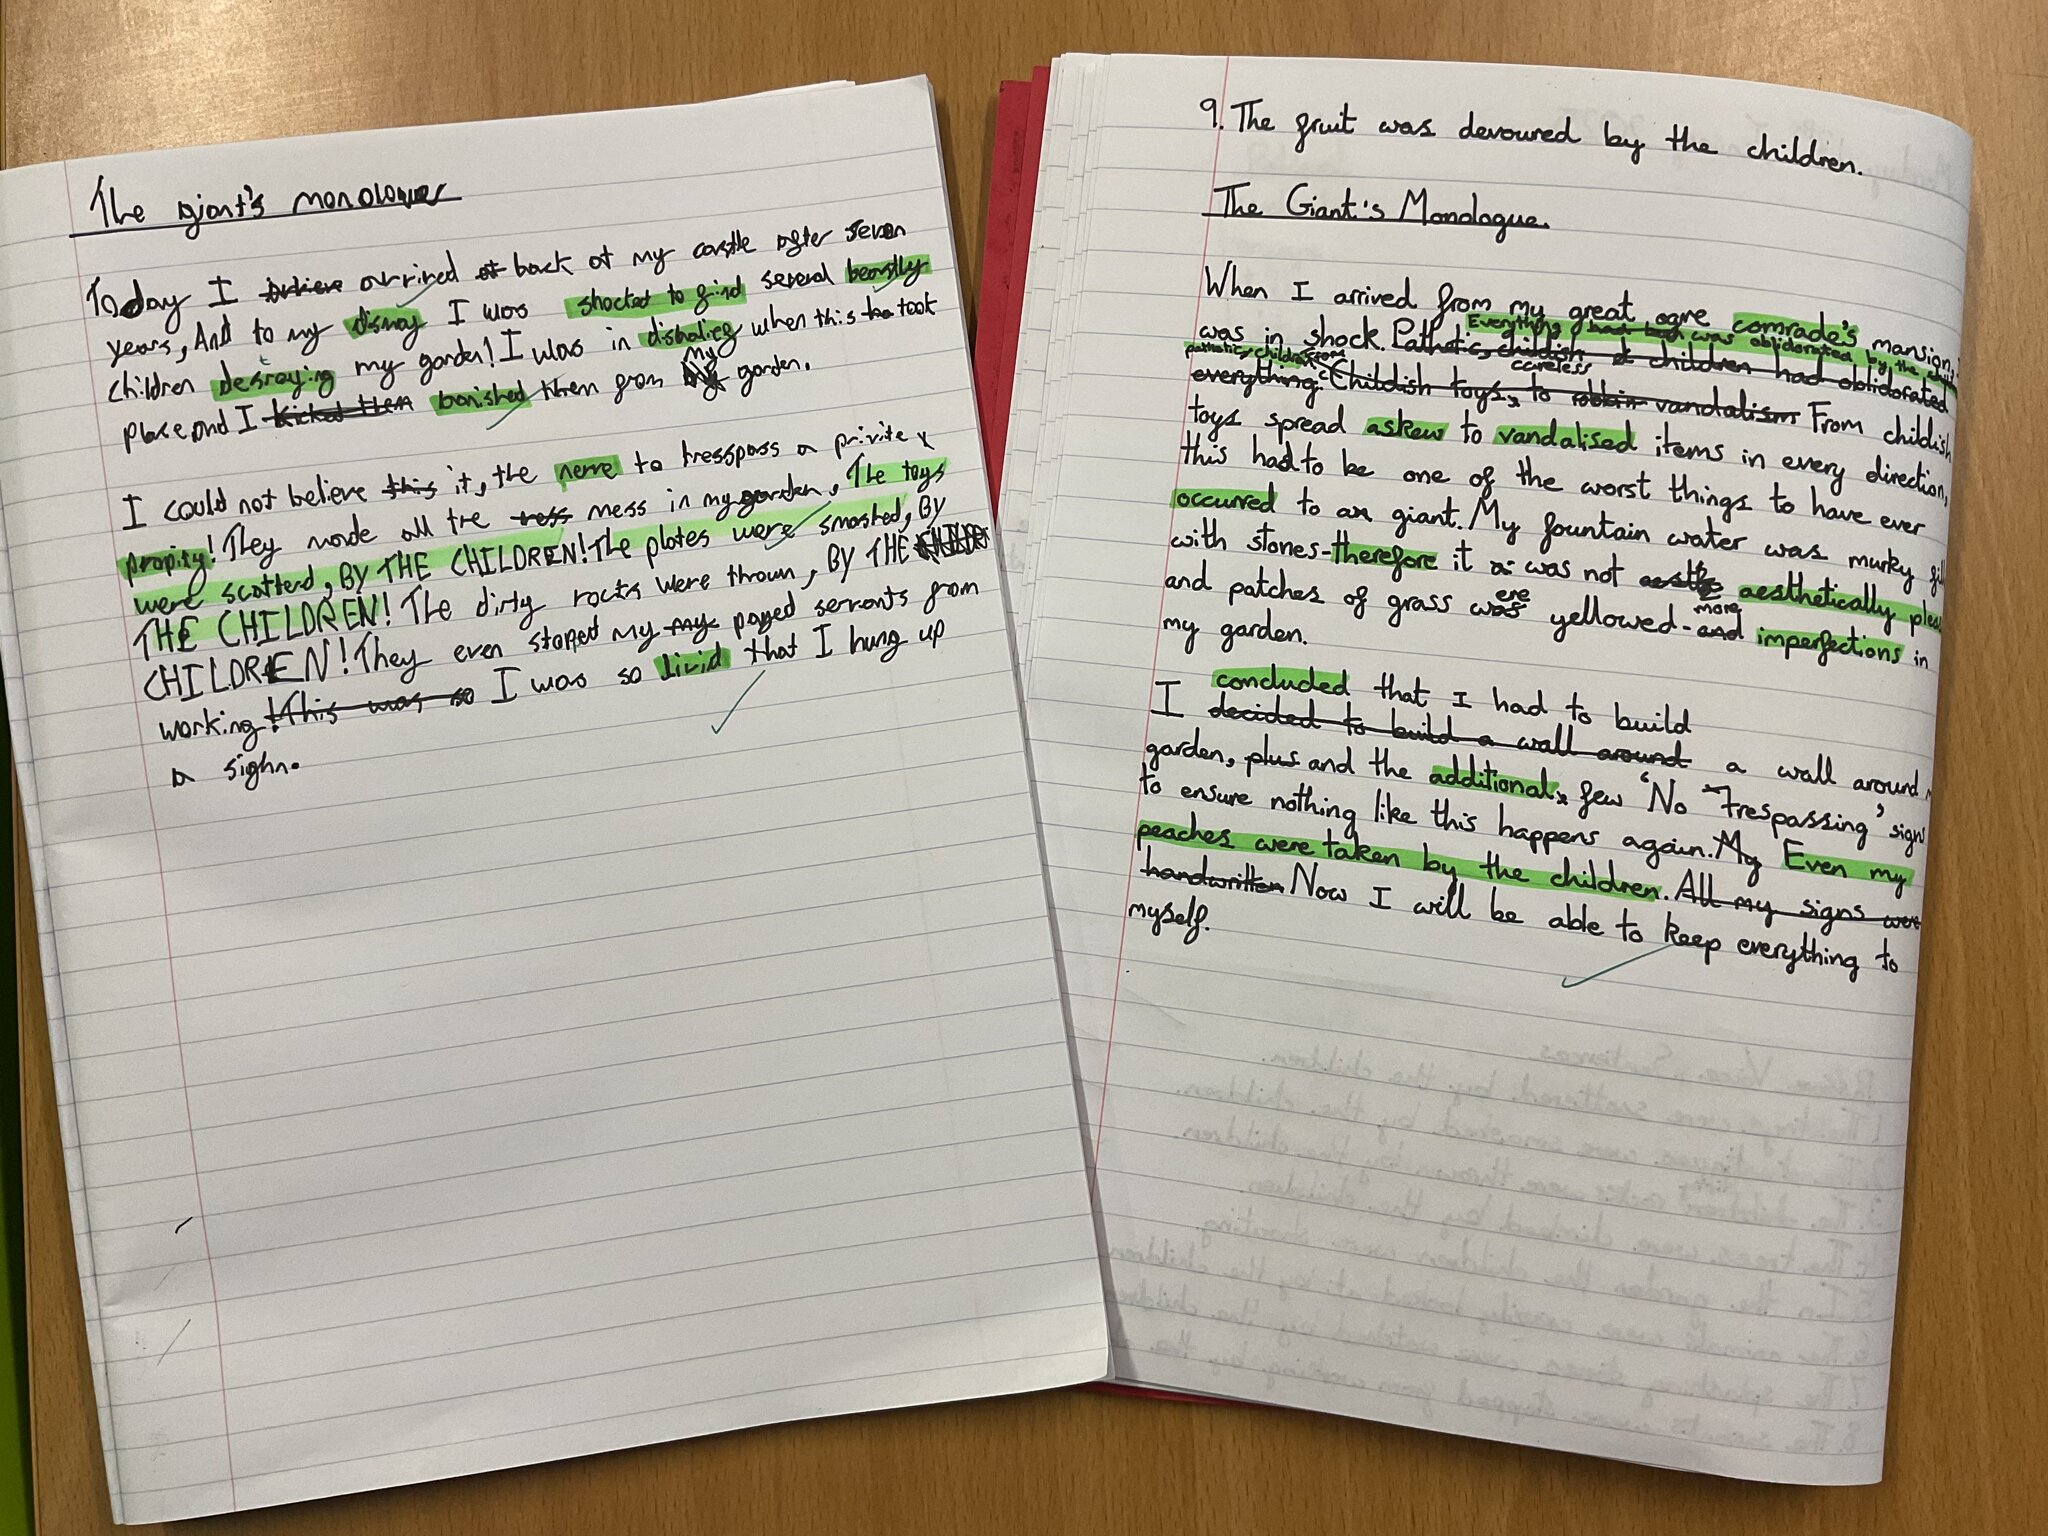 The giant's monologue
Today I arrived back at my castle after seven
years, And to my dismay I was shocked to find several beastly
children desraying my garden! I was in disbelief when this took
place and I kicked them banished them from my garden.
I could not believe this it, the nerve to tresspass a privite
propity! They made all the mess in my garden, The toys
were scatterd, BY THE CHILDREN! The plates were smashed, BY
THE CHILDREN! The dirty rocks were thrown, BY THE
CHILDREN! They even stoped my my payed servants from
working! This was so I was so livid that I hung up
a sighn.
9. The fruit was devoured by the children.
The Giant's Monologue.
When I arrived from my great ogre comrade's mansion,
Everything had was oblidorated by the
was in shock. Pathetic, childish children had oblidorated
pathetic, children
careless
everything. Childish toys, to vandalism From childish
toys spread askew to vandalised items in every direction,
this had to be one of the worst things to have ever
occurred to a giant. My fountain water was murky
with stones-therefore it was not aesthetically
ere
and patches of grass was yellowed-and imperfections in
more
my garden.
concluded that I had to build
I decided to build a wall around a wall around
garden, plus and the additional few 'No Trespassing' signs
to ensure nothing like this happens again. My Even my
peaches were taken by the children. All my signs were
handwritten Now I will be able to keep everything to
myself.